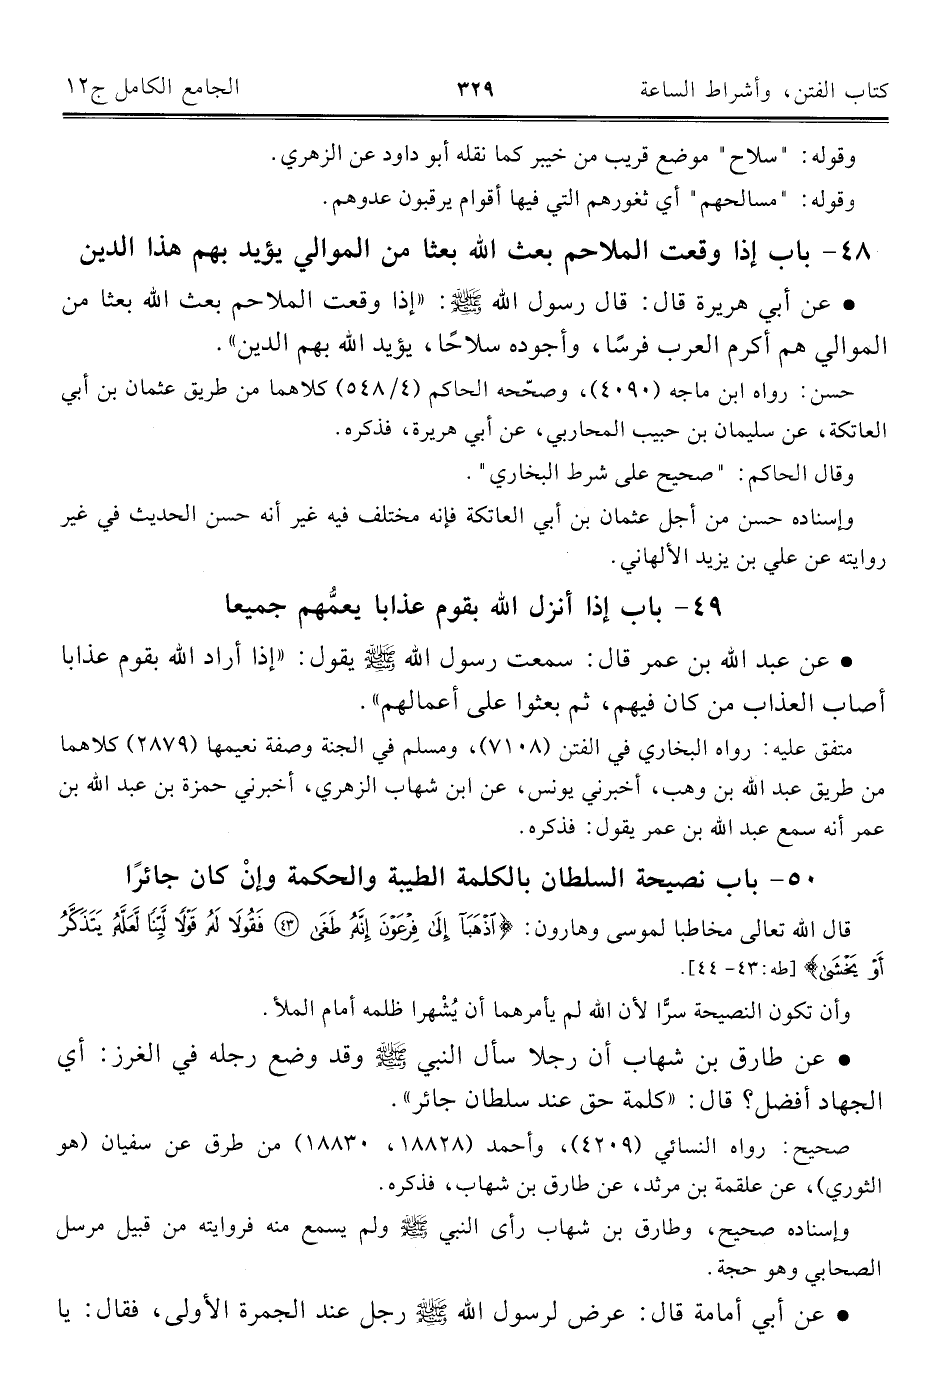 كتاب الفتن، وأشراط الساعة ٣٢٩ الجامع الكامل ج١٢
وقوله: "سلاح" موضع قريب من خيبر كما نقله أبو داود عن الزهري.
وقوله: "مسالحهم" أي ثغورهم التي فيها أقوام يرقبون عدوهم.
٤٨- باب إذا وقعت الملاحم بعث الله بعثا من الموالي يؤيد بهم هذا الدين
• عن أبي هريرة قال: قال رسول الله ﷺ: «إذا وقعت الملاحم بعث الله بعثا من
الموالي هم أكرم العرب فرسًا، وأجوده سلاحًا، يؤيد الله بهم الدين».
حسن: رواه ابن ماجه (٤٠٩٠)، وصحّحه الحاكم (٥٤٨/٤) كلاهما من طريق عثمان بن أبي
العاتكة، عن سليمان بن حبيب المحاربي، عن أبي هريرة، فذكره.
وقال الحاكم: "صحيح على شرط البخاري".
وإسناده حسن من أجل عثمان بن أبي العاتكة فإنه مختلف فيه غير أنه حسن الحديث في غير
روايته عن علي بن يزيد الألهاني.
٤٩- باب إذا أنزل الله بقوم عذابا يعمُّهم جميعا
• عن عبد الله بن عمر قال: سمعت رسول الله ﷺ يقول: «إذا أراد الله بقوم عذابا
أصاب العذاب من كان فيهم، ثم بعثوا على أعمالهم».
متفق عليه: رواه البخاري في الفتن (٧١٠٨)، ومسلم في الجنة وصفة نعيمها (٢٨٧٩) كلاهما
من طريق عبد الله بن وهب، أخبرني يونس، عن ابن شهاب الزهري، أخبرني حمزة بن عبد الله بن
عمر أنه سمع عبد الله بن عمر يقول: فذكره.
٥٠- باب نصيحة السلطان بالكلمة الطيبة والحكمة وإنْ كان جائرًا
قال الله تعالى مخاطبا لموسى وهارون: ﴿ٱذۡهَبَآ إِلَىٰ فِرۡعَوۡنَ إِنَّهُۥ طَغَىٰ ٤٣ فَقُولَا لَهُۥ قَوۡلٗا لَّيِّنٗا لَّعَلَّهُۥ يَتَذَكَّرُ
أَوۡ يَخۡشَىٰ﴾ [طه: ٤٣- ٤٤].
وأن تكون النصيحة سرًّا لأن الله لم يأمرهما أن يُشْهرا ظلمه أمام الملأ.
• عن طارق بن شهاب أن رجلا سأل النبي ﷺ وقد وضع رجله في الغرز: أي
الجهاد أفضل؟ قال: «كلمة حق عند سلطان جائر».
صحيح: رواه النسائي (٤٢٠٩)، وأحمد (١٨٨٢٨، ١٨٨٣٠) من طرق عن سفيان (هو
الثوري)، عن علقمة بن مرثد، عن طارق بن شهاب، فذكره.
وإسناده صحيح، وطارق بن شهاب رأى النبي ﷺ ولم يسمع منه فروايته من قبيل مرسل
الصحابي وهو حجة.
• عن أبي أمامة قال: عرض لرسول الله ﷺ رجل عند الجمرة الأولى، فقال: يا